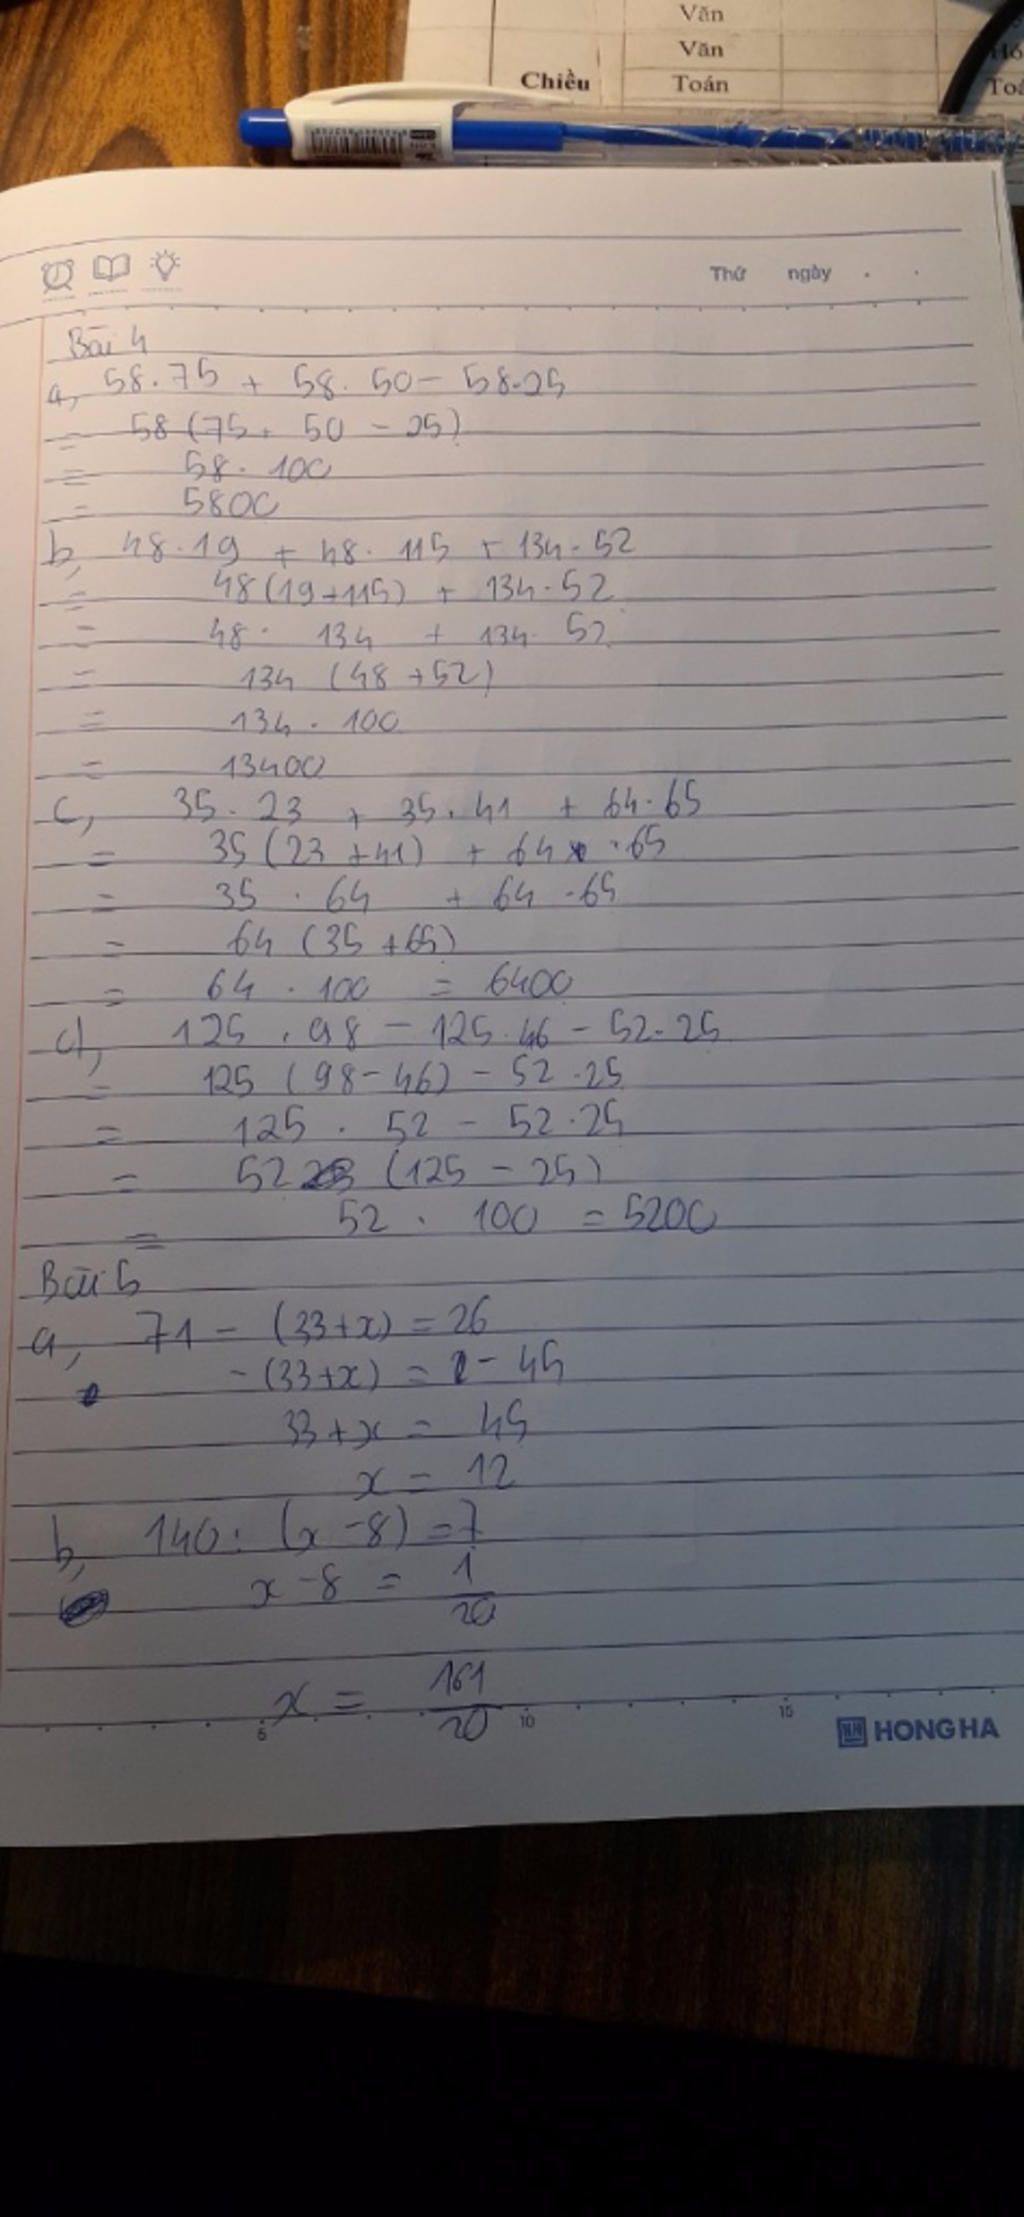 Văn
Văn
Chiều Toán
Thứ ngày . .
Bài 4
a, 58.75 + 58.50 - 58.25
= 58 (75 + 50 - 25)
= 58 . 100
= 5800
b, 48.19 + 48.115 + 134.52
= 48(19+115) + 134.52
= 48 . 134 + 134.52
= 134 (48+52)
= 134 . 100
= 13400
c, 35.23 + 35.41 + 64.65
= 35(23+41) + 64.65
= 35 . 64 + 64.65
= 64 (35+65)
= 64 . 100 = 6400
d, 125 . 98 - 125.46 - 52.25
= 125 (98-46) - 52.25
= 125 . 52 - 52.25
= 52 (125 - 25)
= 52 . 100 = 5200
Bài 5
a, 71 - (33+x) = 26
-(33+x) = -45
33+x = 45
x = 12
b, 140 : (x-8) = 7
x-8 = 1/20
x = 161/20
5 10 15
HONG HA